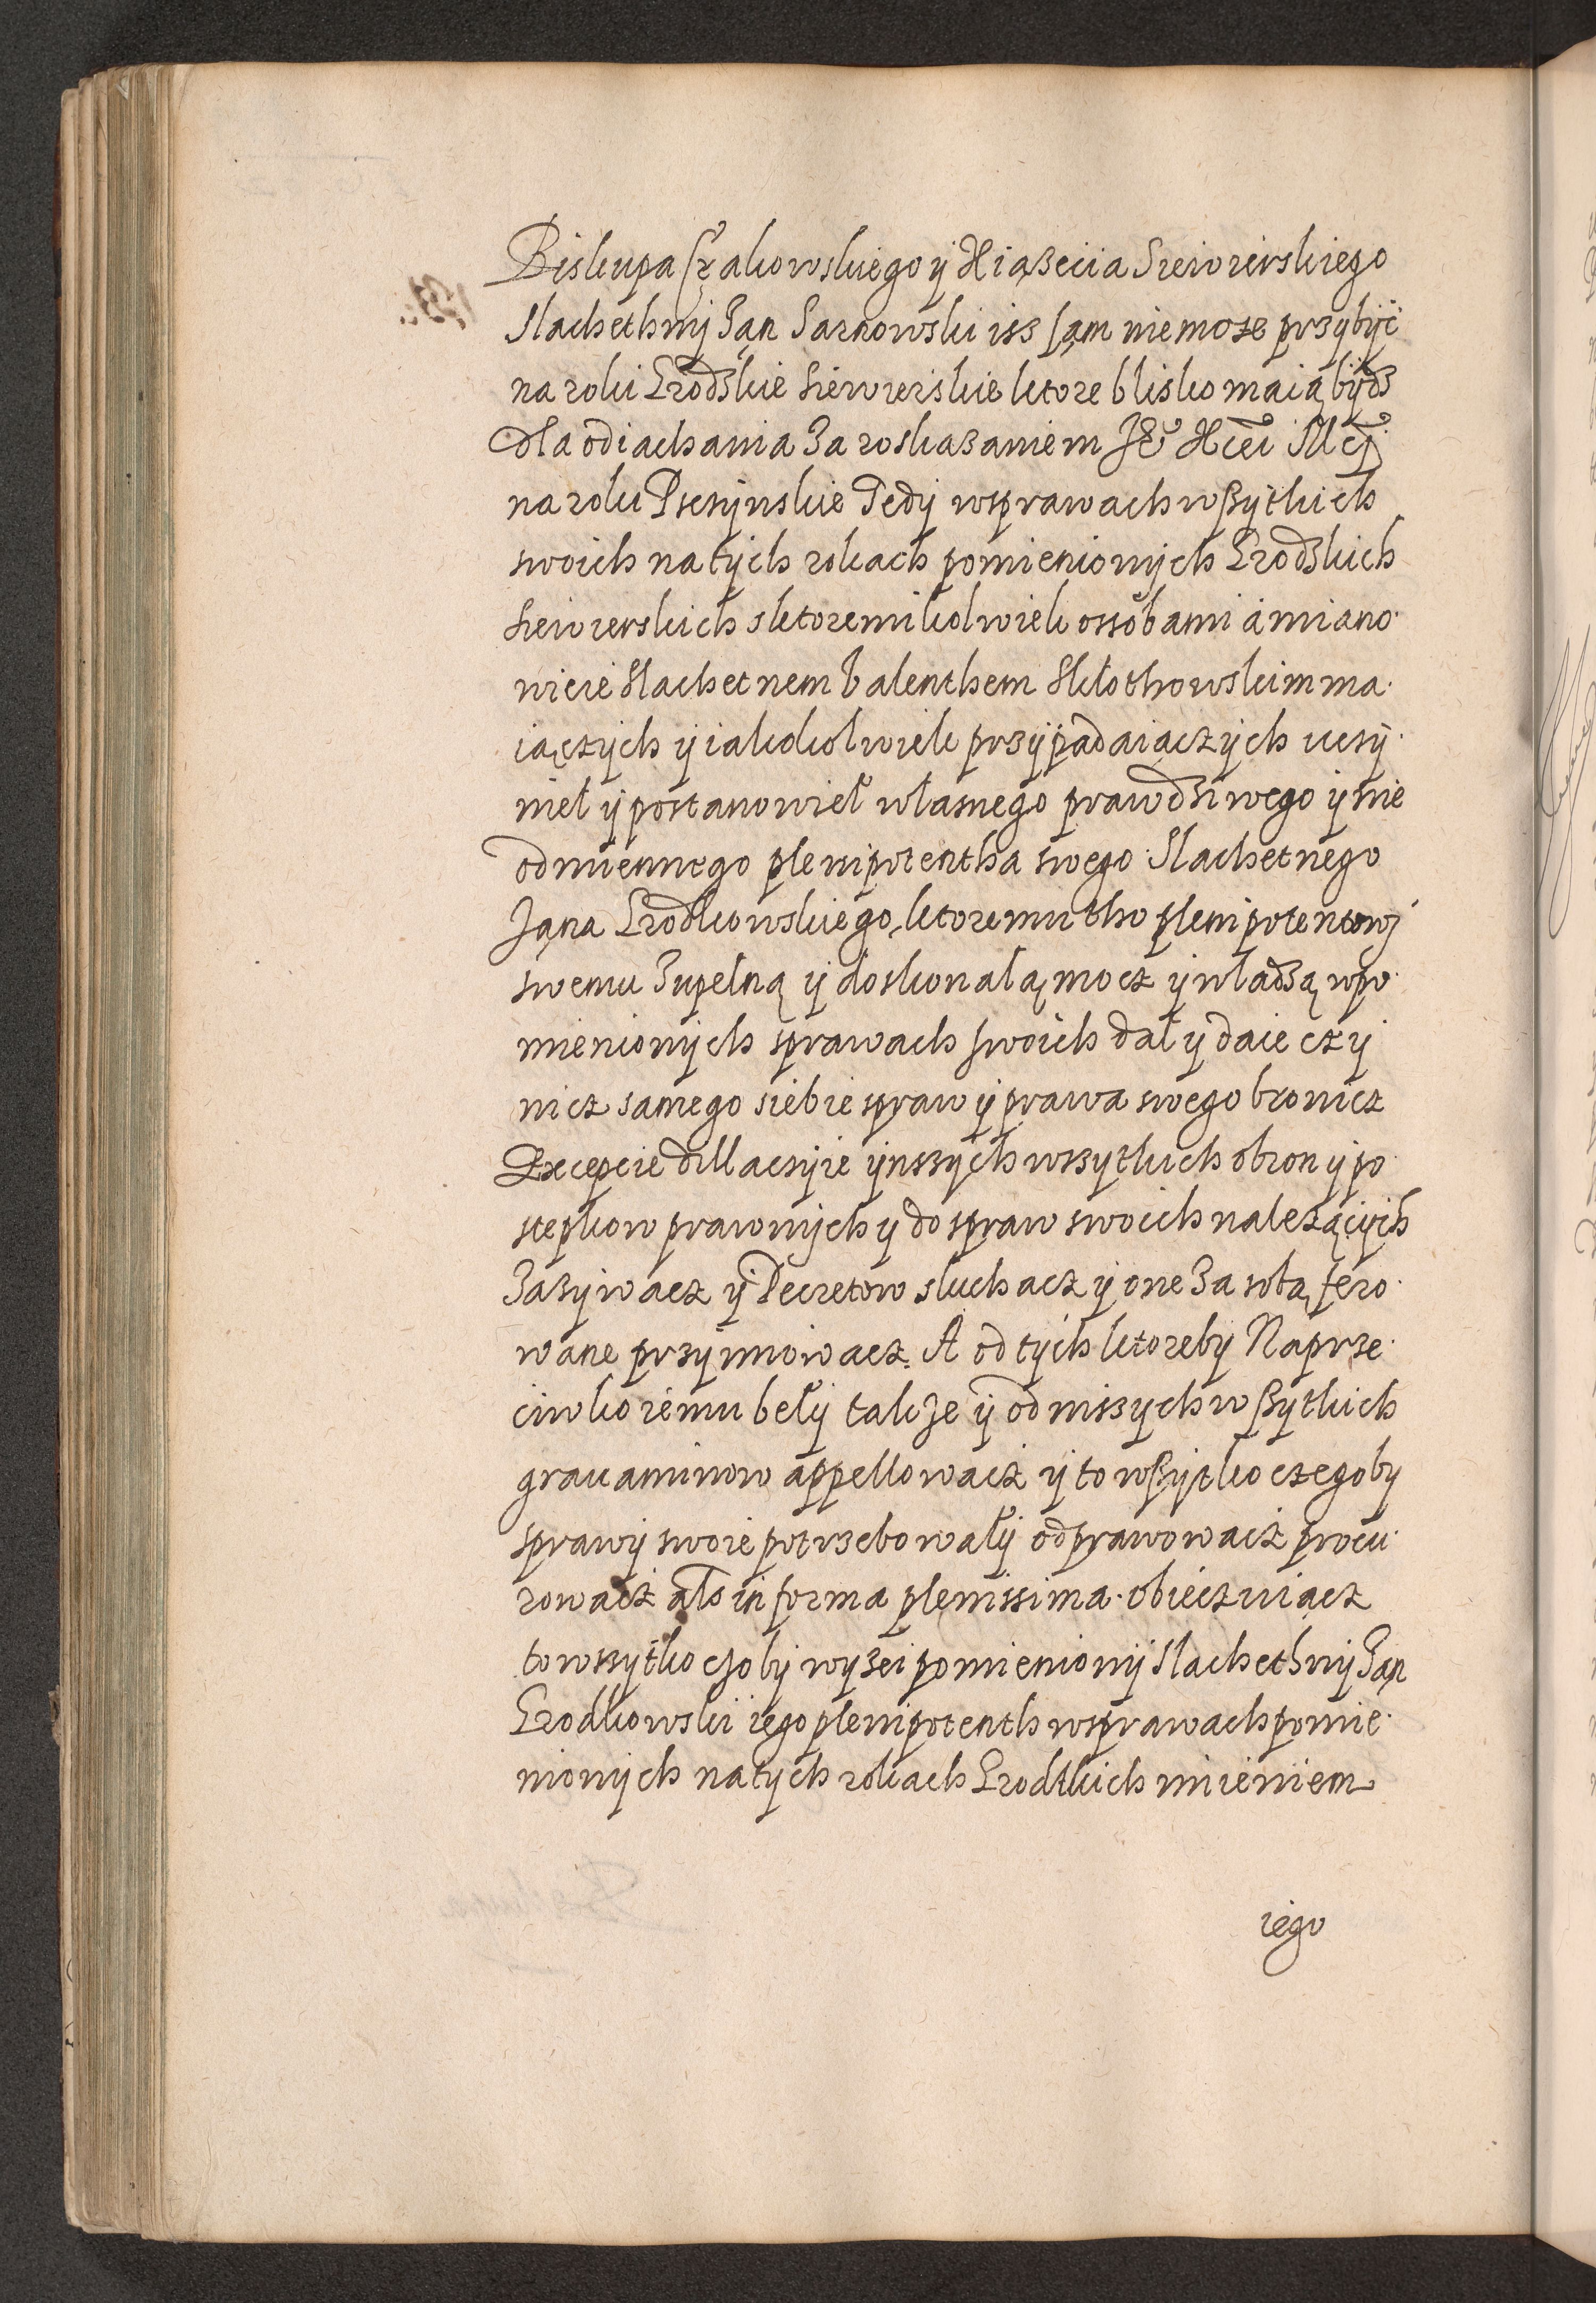 Biskupa Krakowskiego ÿ Xiązęcia Siewierskiego
Slachethnÿ Ian Sarnowski iss sąm nie moze przÿbÿc
na roki Grodzkie Siewierskie ktore blisko maią bÿdz
Dla odiachania za roskazaniem Je° Xcei Mcÿ
na roki Pseÿnskie Tedÿ w sprawach wszÿtkich
swoich na tÿch rokach pomienionÿch Grodzkich
Siewierskich s ktoremikolwiek ossobami a miano
wicie Slachetnem Valenthem Skłothowskim ma
iączÿch ÿ iakokolwiek przÿpadaiączÿch uczÿ
nieł ÿ postanowieł własnego prawdziwego ÿ nie
odmiennego plenipotentha swego Slachetnego
Jąna Grodkowskiego, ktoremu tho plenipotentowi
swemu zupełną ÿ doskonałą mocz ÿ władzą w po
mienionÿch sprawach swoich dał ÿ daie czÿ
nicz samego siebie spraw ÿ prawa swego bronicz
Excepcie dillacÿie ÿnszÿch wszÿtkich obron ÿ po
stepkow prawnÿch ÿ do spraw swoich nalezącÿch
Zazÿwacz ÿ Decretow słuchacz ÿ one za sobą fero
wane przÿmowacz. A od tÿch ktoreby Naprze
ciwko iemu bełÿ takze ÿ od inszÿch wszÿtkich
grauaminow appellowacz ÿ to wszÿtko czegoby
sprawÿ swoie potrzebowałÿ odprawowacz procu
rowacz als in forma plenissima. obieczuiącz
to wszÿtko czobÿ wÿzei pomienionÿ Slachethnÿ Ian
Grodkowski iego plenipotenth w sprawach pomie
nionÿch na tÿch rokach Grodtkich imieniem
iego